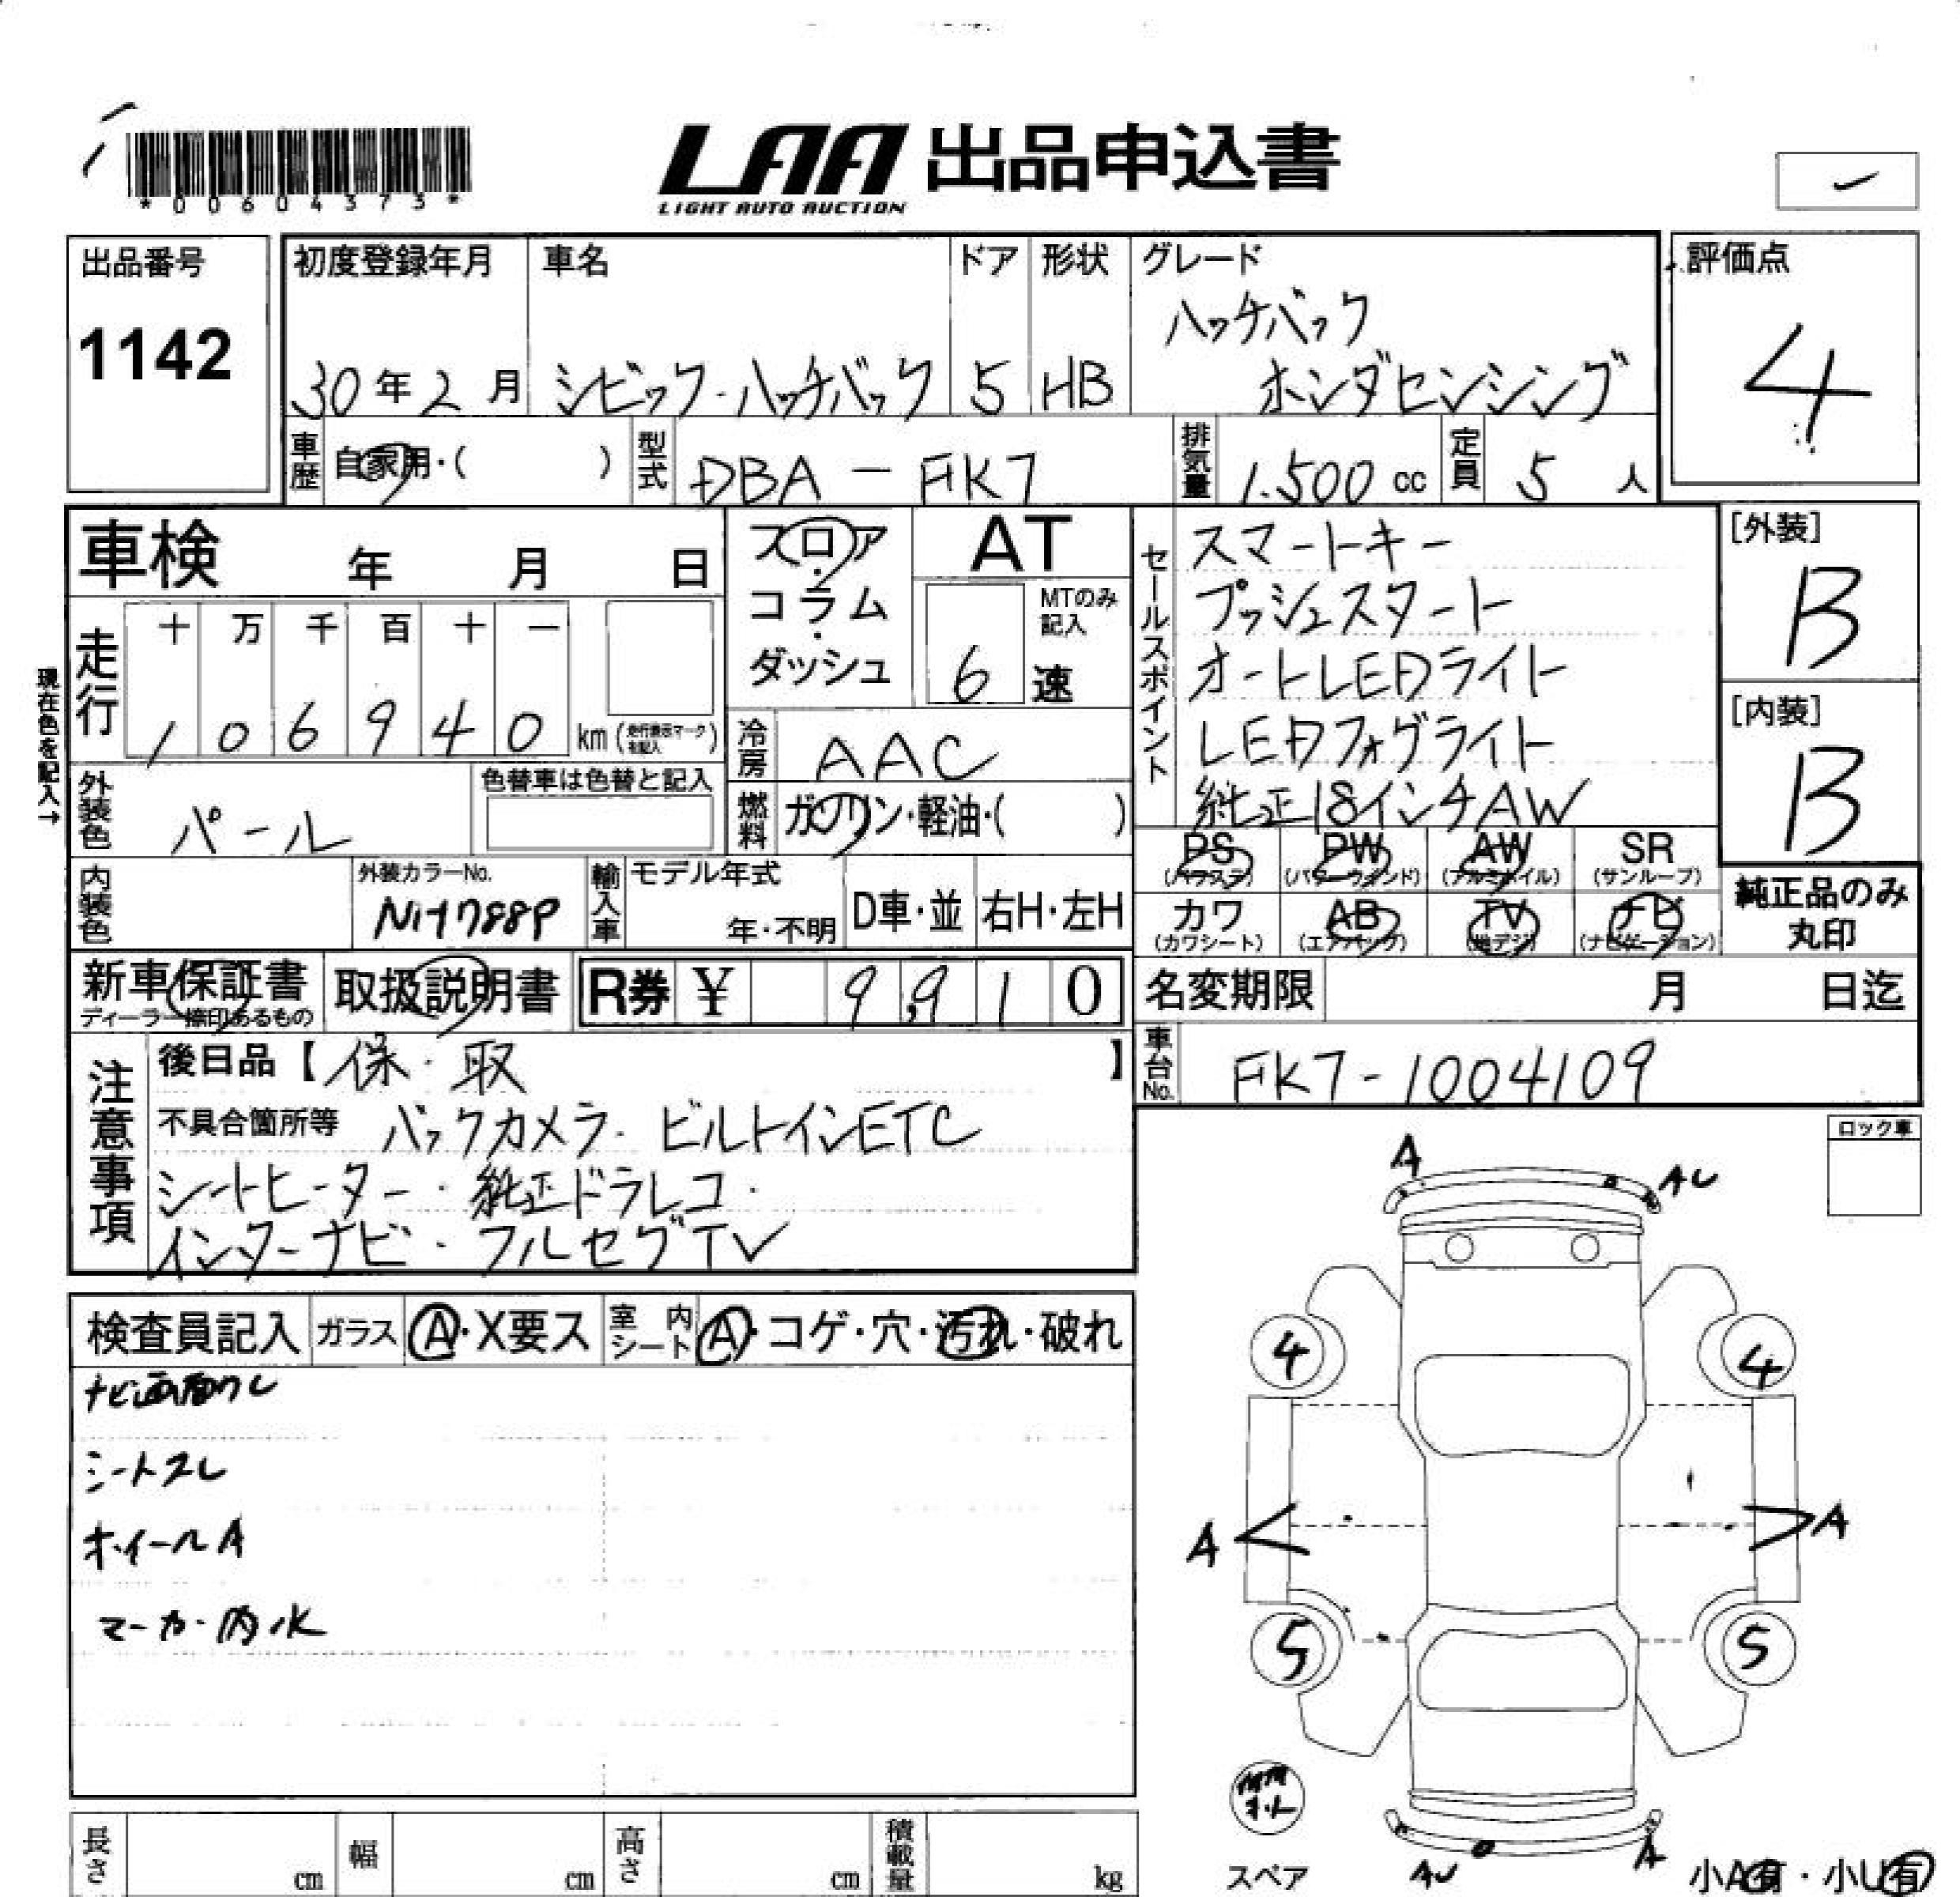 *00604373*
LAA 出品申込書
LIGHT AUTO AUCTION
出品番号
1142
初度登録年月
30年2月
車名
シビック・ハッチバック
ドア
5
形状
HB
グレード
ハッチバック
ホンダセンシング
評価点
4
車歴
自家用・( )
型式
DBA-FK7
排気量
1.500 cc
定員
5 人
車検 年 月 日
フロア・コラム・ダッシュ
AT
MTのみ記入
6 速
現在色を記入→
走行
十 万 千 百 十 一
1 0 6 9 4 0 km (走行表示マーク有記入)
冷房
AAC
外装色
パール
色替車は色替と記入
燃料
ガソリン・軽油・( )
セールスポイント
スマートキー
プッシュスタート
オートLEDライト
LEDフォグライト
純正18インチAW
[外装]
B
[内装]
B
PS (パワステ)
PW (パワーウインド)
AW (アルミホイル)
SR (サンルーフ)
カワ (カワシート)
AB (エアバッグ)
TV (地デジ)
ナビ (ナビゲーション)
純正品のみ
丸印
内装色
外装カラーNo.
NH788P
輸入車
モデル年式
年・不明
D車・並
右H・左H
新車保証書
ディーラー捺印あるもの
取扱説明書
R券 ¥ 9,910
名変期限 月 日迄
車台No.
FK7-1004109
注意事項
後日品【保・取】
不具合箇所等 バックカメラ・ビルトインETC
シートヒーター・純正ドラレコ・
インターナビ・フルセグTV
ロック車
検査員記入
ガラス
A・X要ス
室内シート
A・コゲ・穴・汚れ・破れ
ナビ画面ウレ
シートスレ
ホイールA
マーカー内水
A
AU
4
4
A
A
5
5
AU
A
スペア
小A有・小U有
長さ cm
幅 cm
高さ cm
積載量 kg